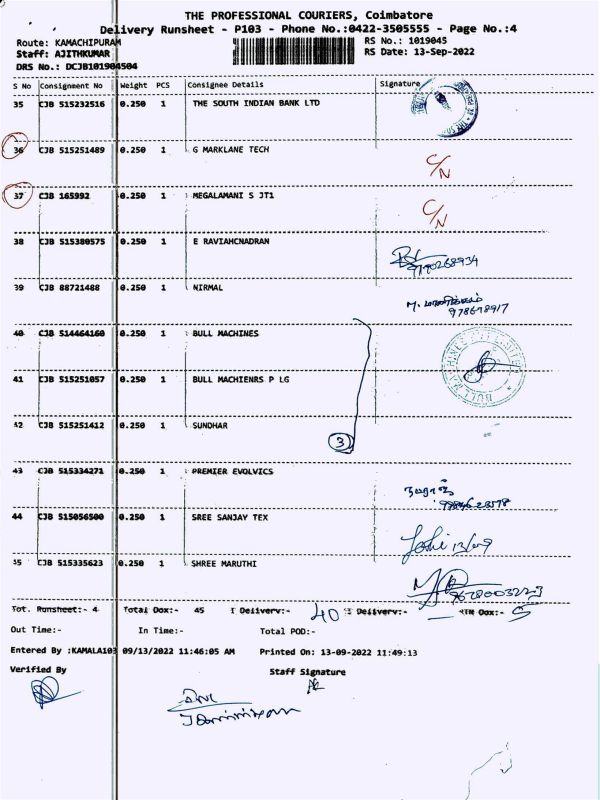 THE PROFESSIONAL COURIERS, Coimbatore
Delivery Runsheet - P103 - Phone No.:0422-3505555 - Page No.:4
Route: KAMACHIPURAM RS No.: 1019045
Staff: AJITHKUMAR RS Date: 13-Sep-2022
DRS No.: DCJB101904504
S No Consignment No Weight PCS Consignee Details Signature
35 CJB 515232516 0.250 1 THE SOUTH INDIAN BANK LTD
36 CJB 515251489 0.250 1 G MARKLANE TECH C/N
37 CJB 165992 0.250 1 MEGALAMANI S JT1 C/N
38 CJB 515380575 0.250 1 E RAVIAHCNADRAN
9790268934
39 CJB 88721488 0.250 1 NIRMAL
40 CJB 514464160 0.250 1 BULL MACHINES
41 CJB 515251057 0.250 1 BULL MACHIENRS P LG
42 CJB 515251412 0.250 1 SUNDHAR
3
43 CJB 515334271 0.250 1 PREMIER EVOLVICS
44 CJB 515056500 0.250 1 SREE SANJAY TEX
13/09
45 CJB 515335623 0.250 1 SHREE MARUTHI
Tot. Runsheet:- 4 Total Dox:- 45 Delivery:- 40 Delivery:- RTN Dox:- 5
Out Time:- In Time:- Total POD:-
Entered By :KAMALA103 09/13/2022 11:46:05 AM Printed On: 13-09-2022 11:49:13
Verified By Staff Signature